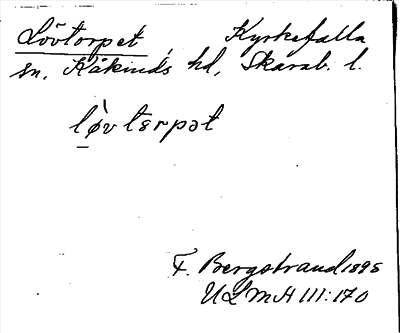 Lövtorpet, Kyrkefalla
sn, Kåkinds hd, Skarab. l.
lø̀vtɛrpət
F. Bergstrand 1895
ULMA 111:170